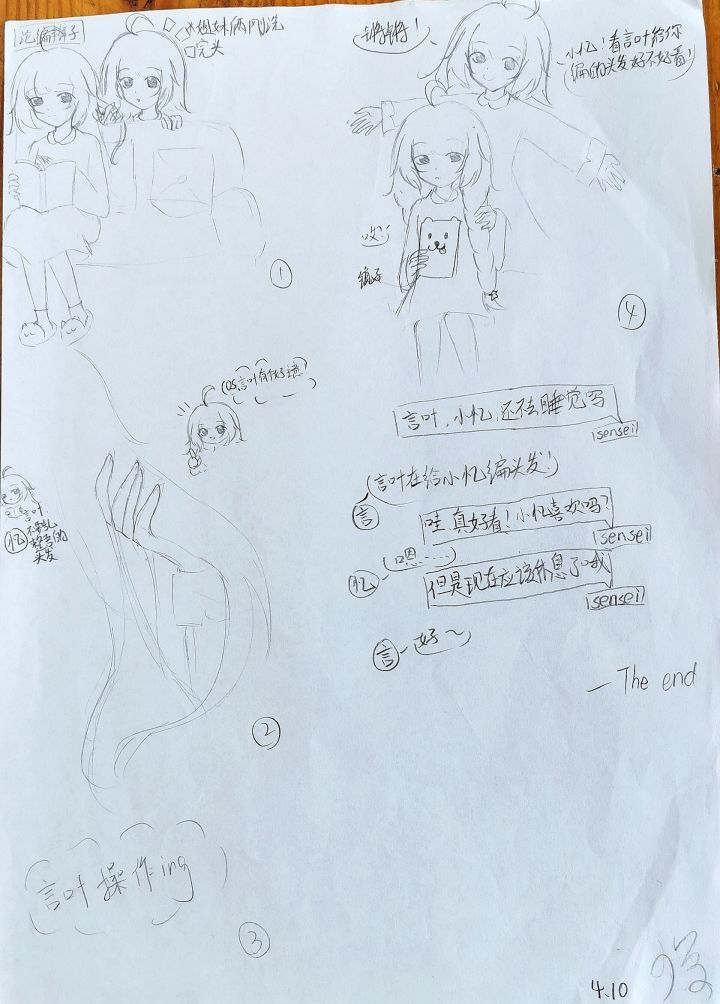 论编辫子
姐妹俩刚洗
完头
①
(OS:言叶有个好主意)
言叶
不要乱
忆
头发
②
言叶操作ing
③
锵锵!
小忆!看言叶给你
编的头发好不好看!
哎!
镜子
④
言叶,小忆,还不去睡觉吗
sensei
言叶在给小忆编头发!
言
哇真好看!小忆喜欢吗?
sensei
嗯……
忆
但是现在应该休息了哦
sensei
言
好~
— The end
4.10